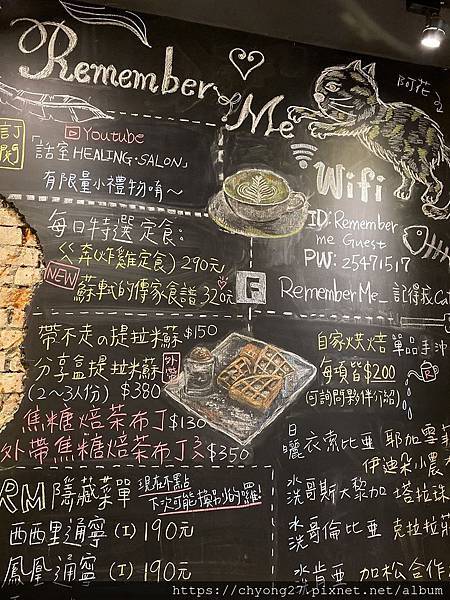 Remember
Me
阿花
訂閱
Youtube
「話室HEALING·SALON」
有限量小禮物唷~
Wifi
ID:Remember
me Guest
PW:25471517
每日特選定食:
炸雞定食)290元
NEW
傳家食譜 320元
F
RememberMe_記得我.Ca
帶不走の提拉米蘇 $150
分享盒提拉米蘇 外帶
(2~3人份) $380
焦糖焙茶布丁 $130
外帶焦糖焙茶布丁 $350
自家烘焙 單品手沖
每項皆$200
(可詢問夥伴介紹)
日曬 衣索比亞 耶加雪菲
伊迪朵小農
水洗 哥斯大黎加 塔拉珠
水洗 哥倫比亞 克拉拉莊
水 肯亞 加松合作
RM隱藏菜單
現在不點
下次可能換別的囉!
西西里通寧 (I) 190元
鳳凰通寧 (I) 190元
https://chyong27.pixnet.net/album